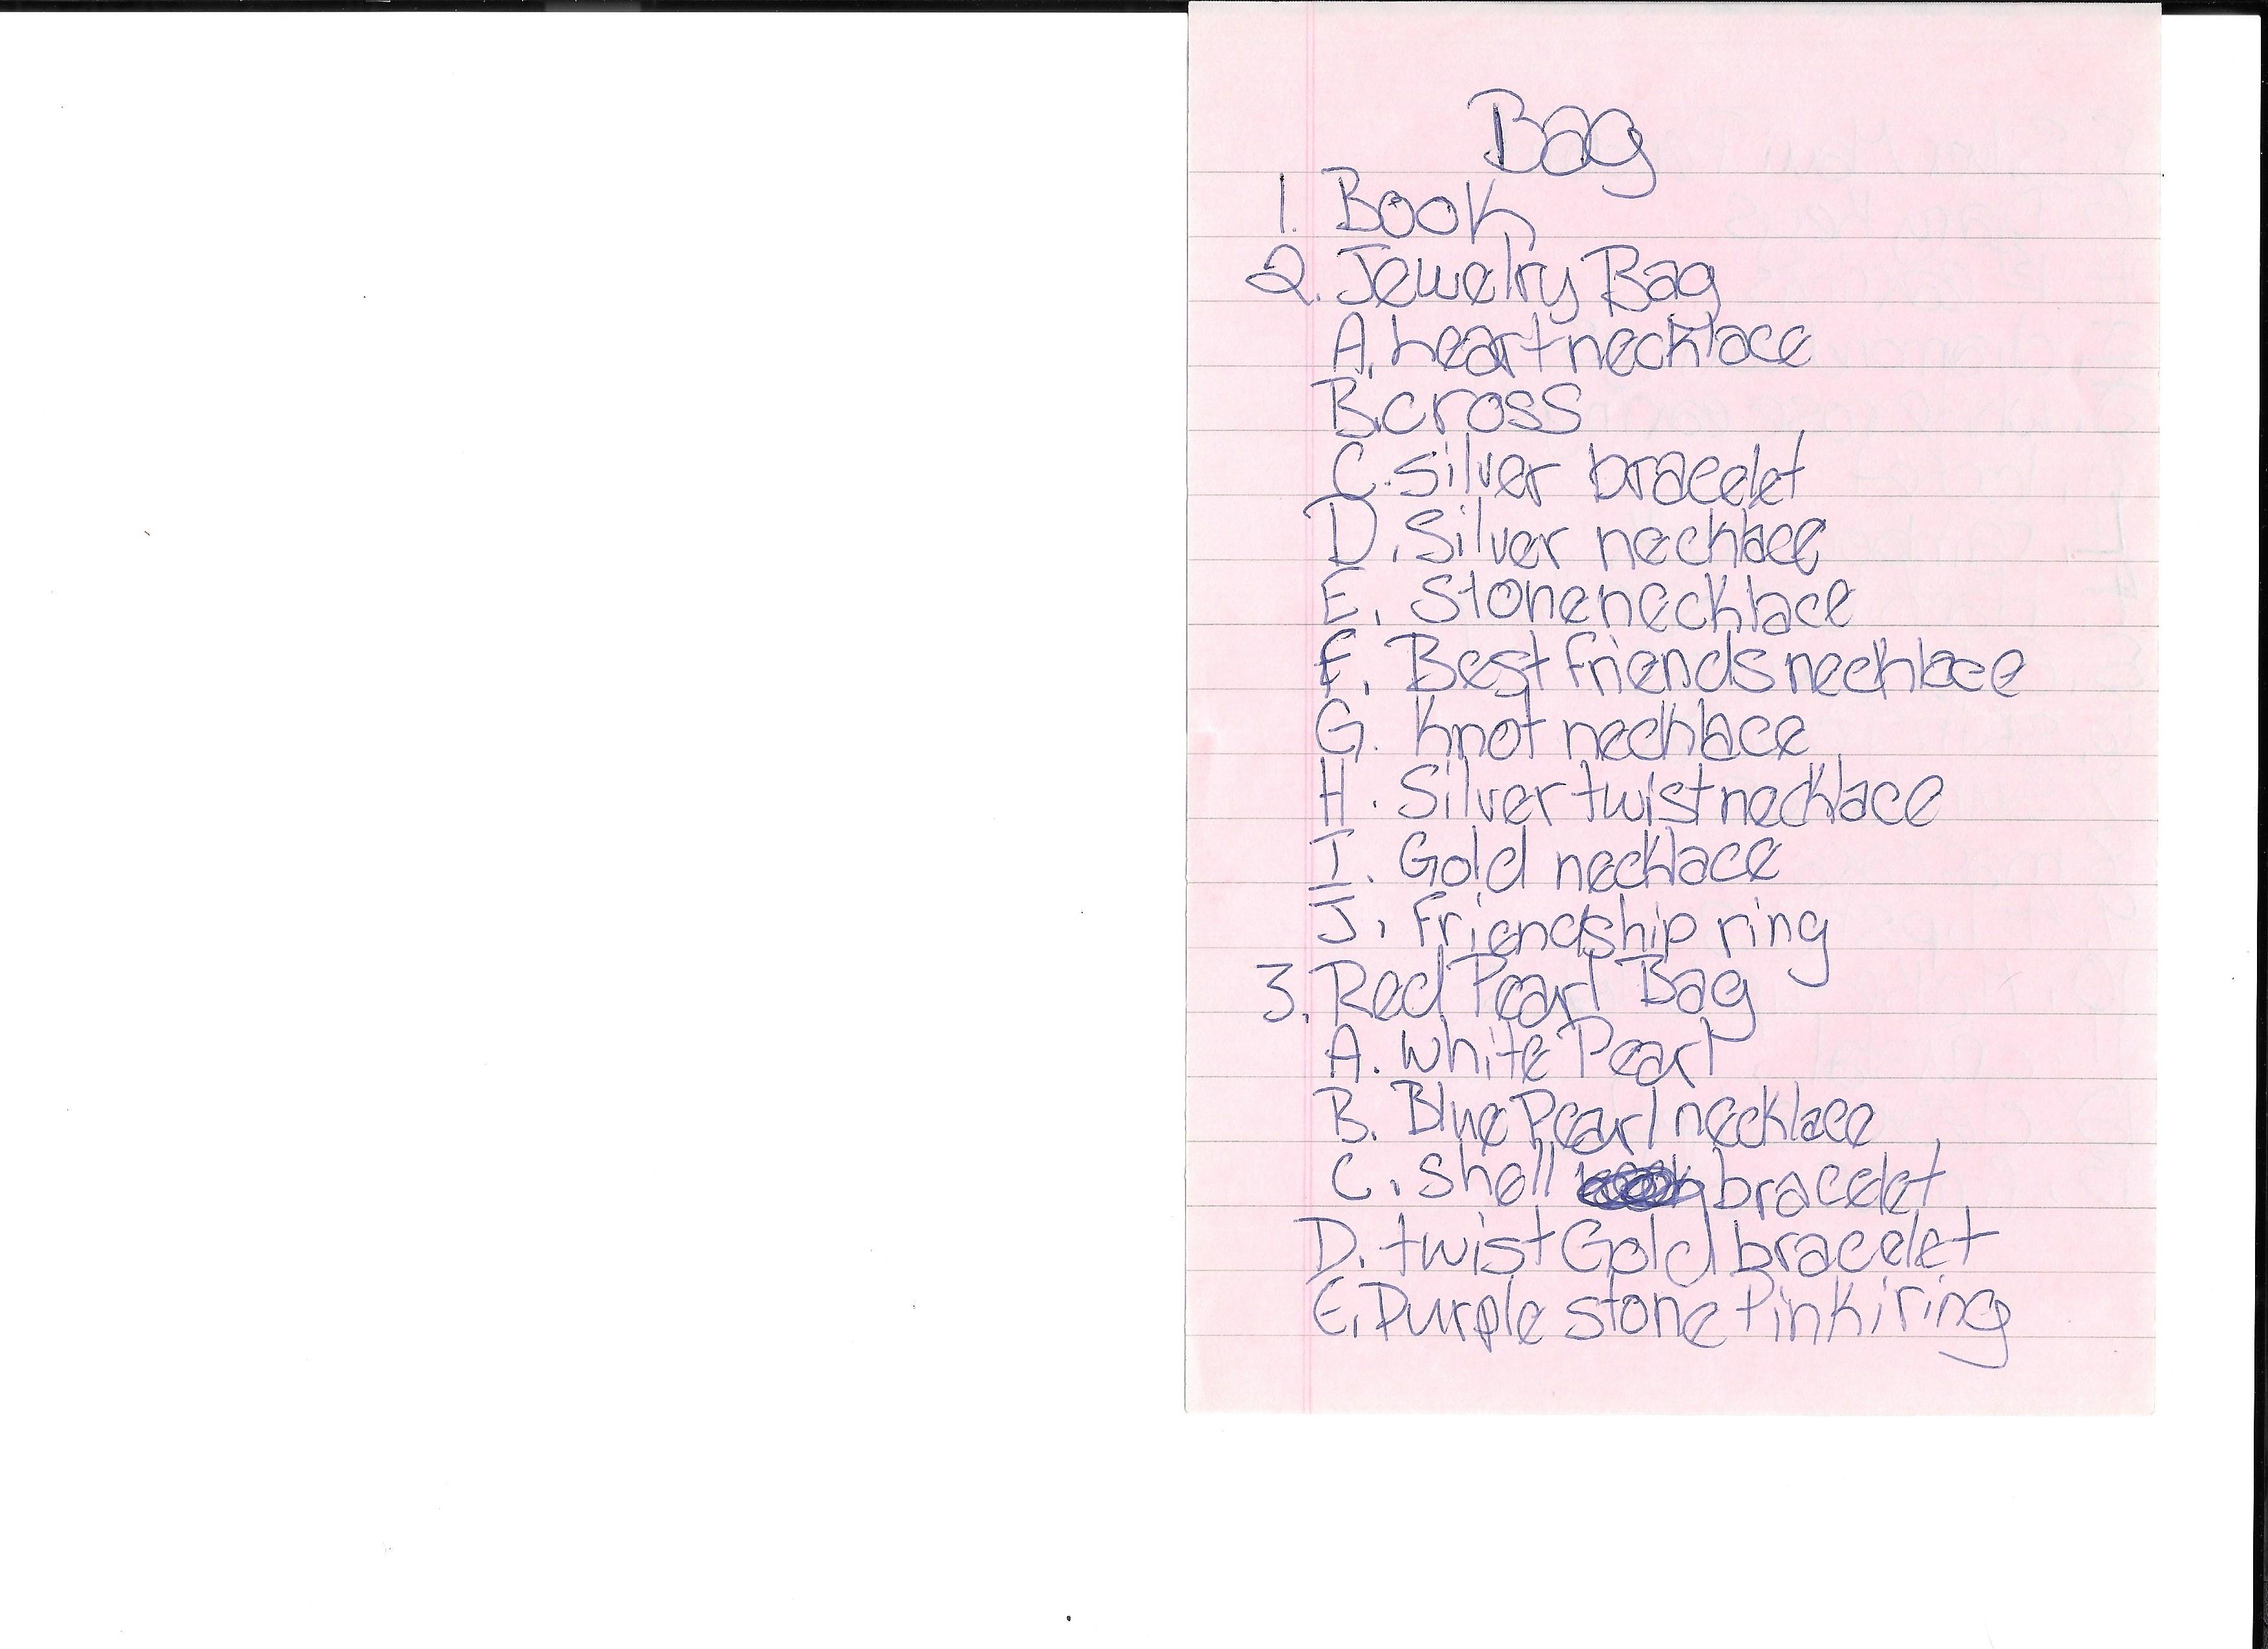 Bag
1. Book
2. Jewelry Bag
A. heart necklace
B. cross
C. silver bracelet
D. Silver necklace
E. Stone necklace
F. Best friends necklace
G. Knot necklace
H. Silver twist necklace
I. Gold necklace
J. Friendship ring
3. Red Pearl Bag
A. White Pearl
B. Blue Pearl necklace
C. Shell bracelet
D. twist Gold bracelet
E. Purple stone Pinki ring